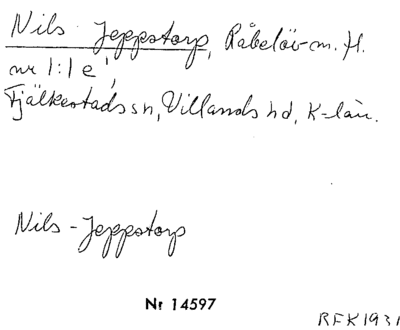 Nils Jeppstorp, Råbelöv m. fl.
nr 1:1 e,
Fjälkestads sn, Villands hd, K-län.
Nils - Jeppstorp
Nr 14597
RFK 1931